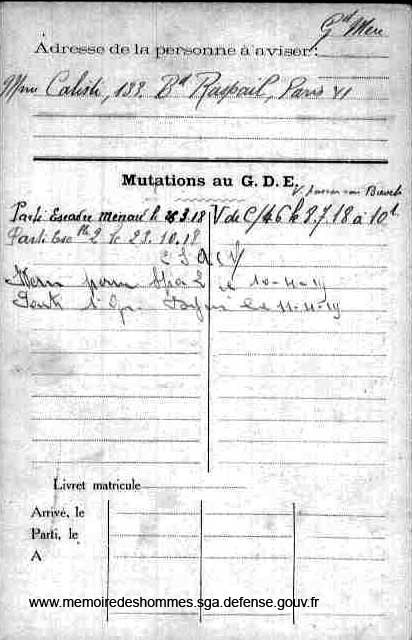 Gd Mère
Adresse de la personne à aviser :
Mme Calisti, 133. Bd Raspail, Paris VI
Mutations au G. D. E.
Parti Escadre Ménard le 26.3.18
V de C/46 le 8.7.18 à 10h
Parti Esc lle 2 le 23.10.18
pour Spa 2 le 10-11-19
le 11-11-19
Livret matricule
Arrivé, le
Parti, le
A
www.memoiredeshommes.sga.defense.gouv.fr